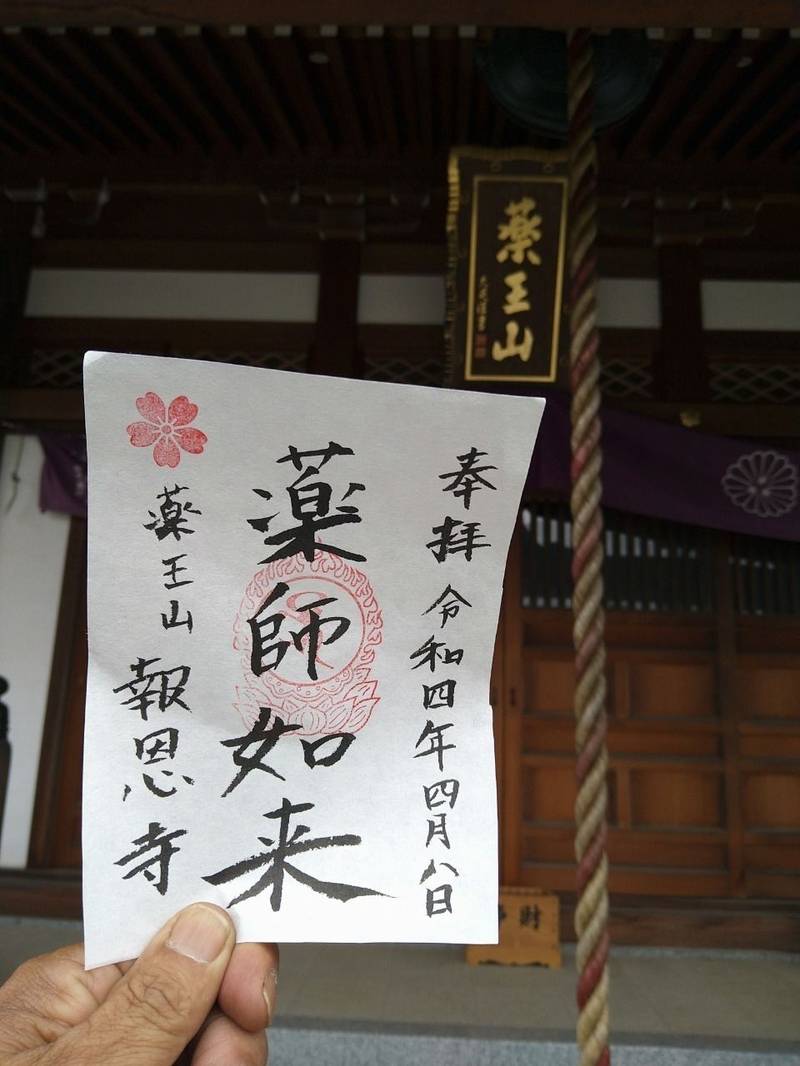 奉拝 令和四年四月八日
薬師如来
薬王山 報恩寺
薬王山
財